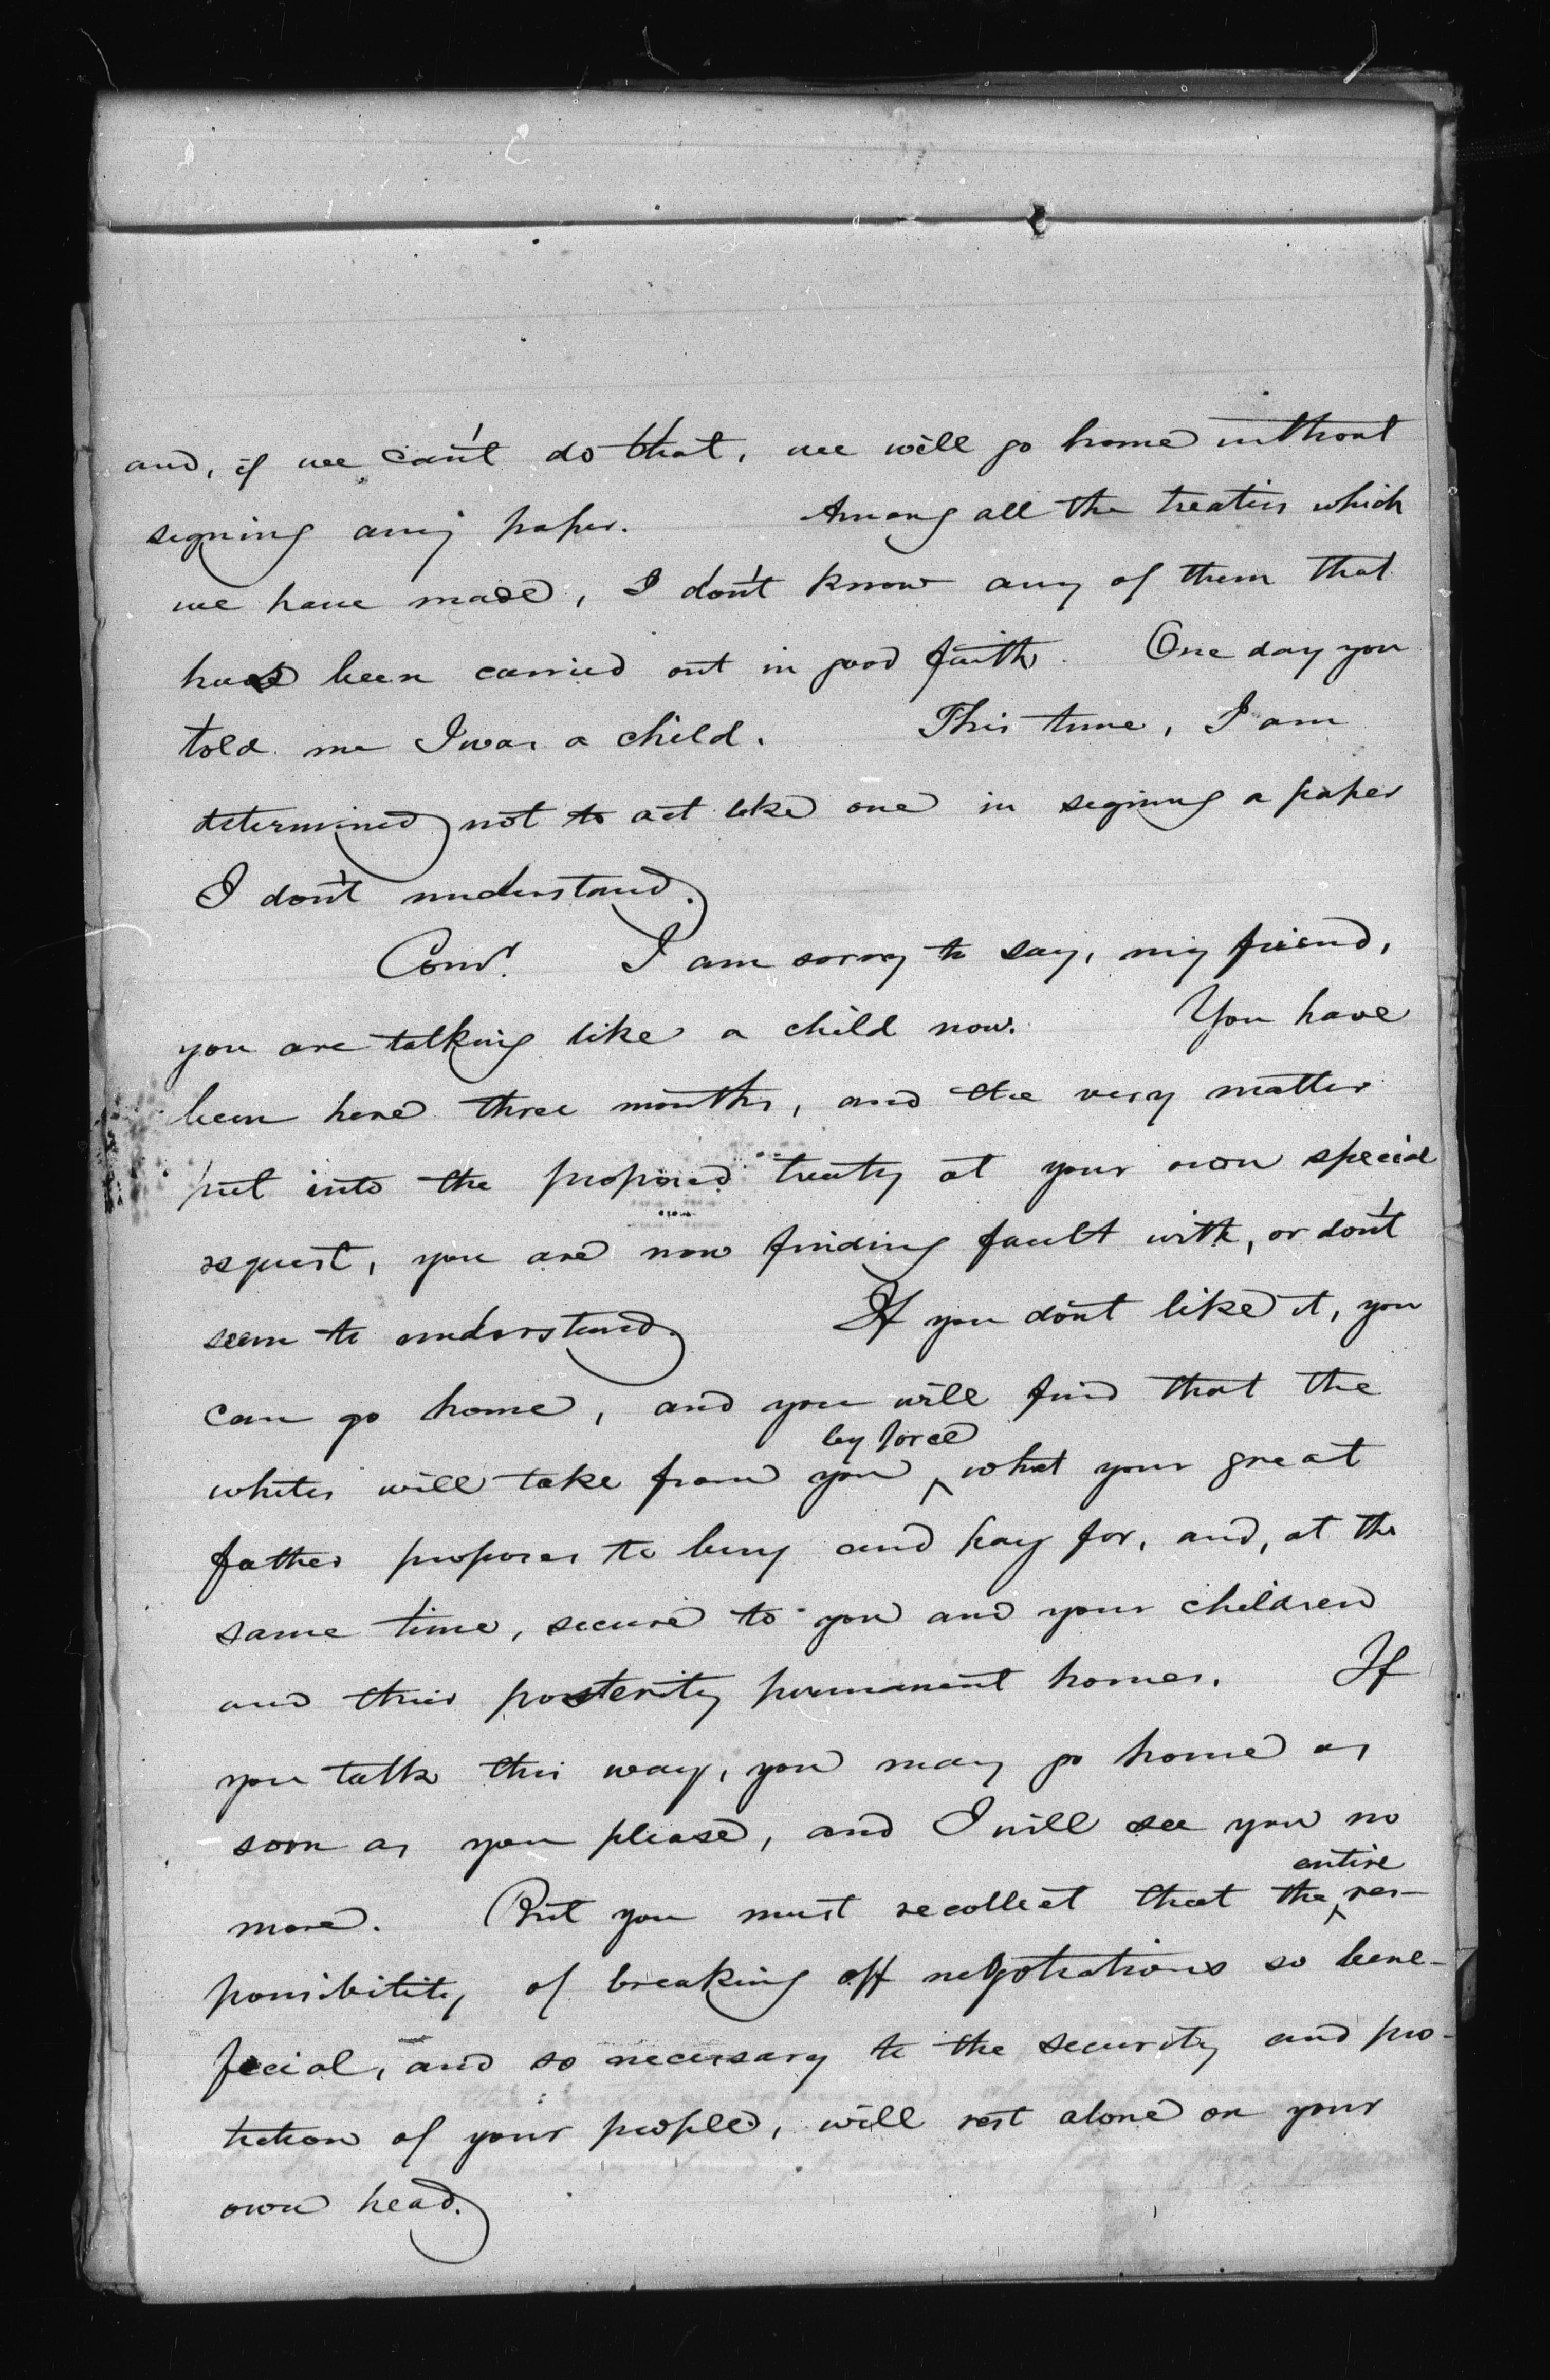 and, if we can't do that, we will go home without
signing any paper. Among all the treaties which
we have made, I don't know any of them that
has been carried out in good faith. One day you
told me I was a child. This time, I am
determined not to act like one in signing a paper
I don't understand.
Comr. I am sorry to say, my friend,
you are talking like a child now. You have
been here three months, and the very matter
put into the proposed treaty at your own special
request, you are now finding fault with, or don't
seem to understand. If you don't like it, you
can go home, and you will find that the
by force
whites will take from you ^ what your great
father proposes to buy and pay for, and, at the
same time, secure to you and your children
and their posterity permanent homes. If
you talk this way, you may go home as
soon as you please, and I will see you no
entire
more. But you must recollect that the ^ res-
ponsibility of breaking off negotiations so bene-
ficial, and so necessary to the security and pro-
tection of your people, will rest alone on your
own head.